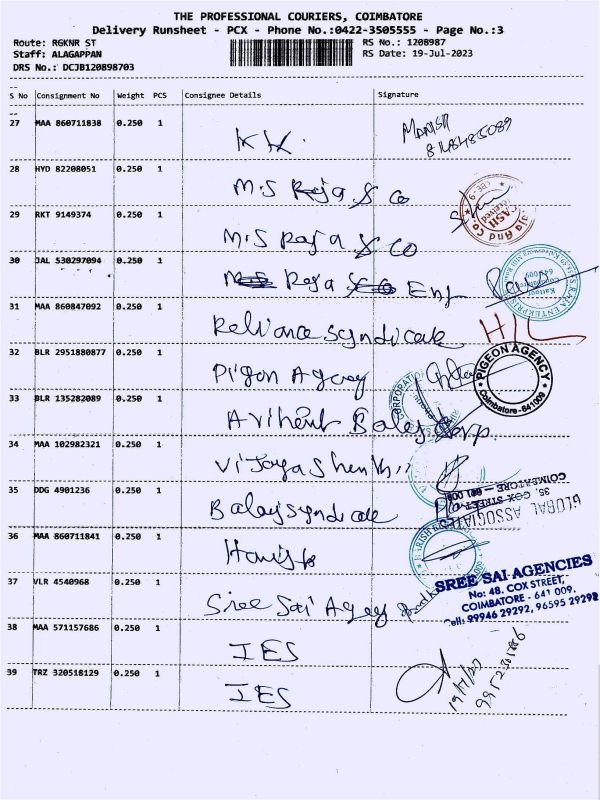 THE PROFESSIONAL COURIERS, COIMBATORE
Delivery Runsheet - PCX - Phone No.:0422-3505555 - Page No.:3
Route: RGKNR ST RS No.: 1208987
Staff: ALAGAPPAN RS Date: 19-Jul-2023
DRS No.: DCJB120898703
S No Consignment No Weight PCS Consignee Details Signature
27 MAA 860711838 0.250 1
KK. MANISH
28 HYD 82208051 0.250 1
M.S Raja & Co
29 RKT 9149374 0.250 1
M.S Raja & CO
30 JAL 530297094 0.250 1
Raja Enf
31 MAA 860847092 0.250 1
Reliance syndicate HIL
32 BLR 2951880877 0.250 1
Pigon Agency
PIGEON AGENCY
Coimbatore - 641009
33 BLR 135282089 0.250 1
Arihent Sales Corp.
CORPORATION
34 MAA 102982321 0.250 1
35 DDG 4901236 0.250 1
Balaj syndicate
GLOBAL ASSOCIATES
35, COX STREET,
COIMBATORE - 641 001
36 MAA 860711841 0.250 1
37 VLR 4540968 0.250 1
Sree Sai Agency
SREE SAI AGENCIES
No: 48, COX STREET,
COIMBATORE - 641 009.
Cell: 99946 29292, 96595 29292
38 MAA 571157686 0.250 1
IES
39 TRZ 320518129 0.250 1
IES
19/7/23